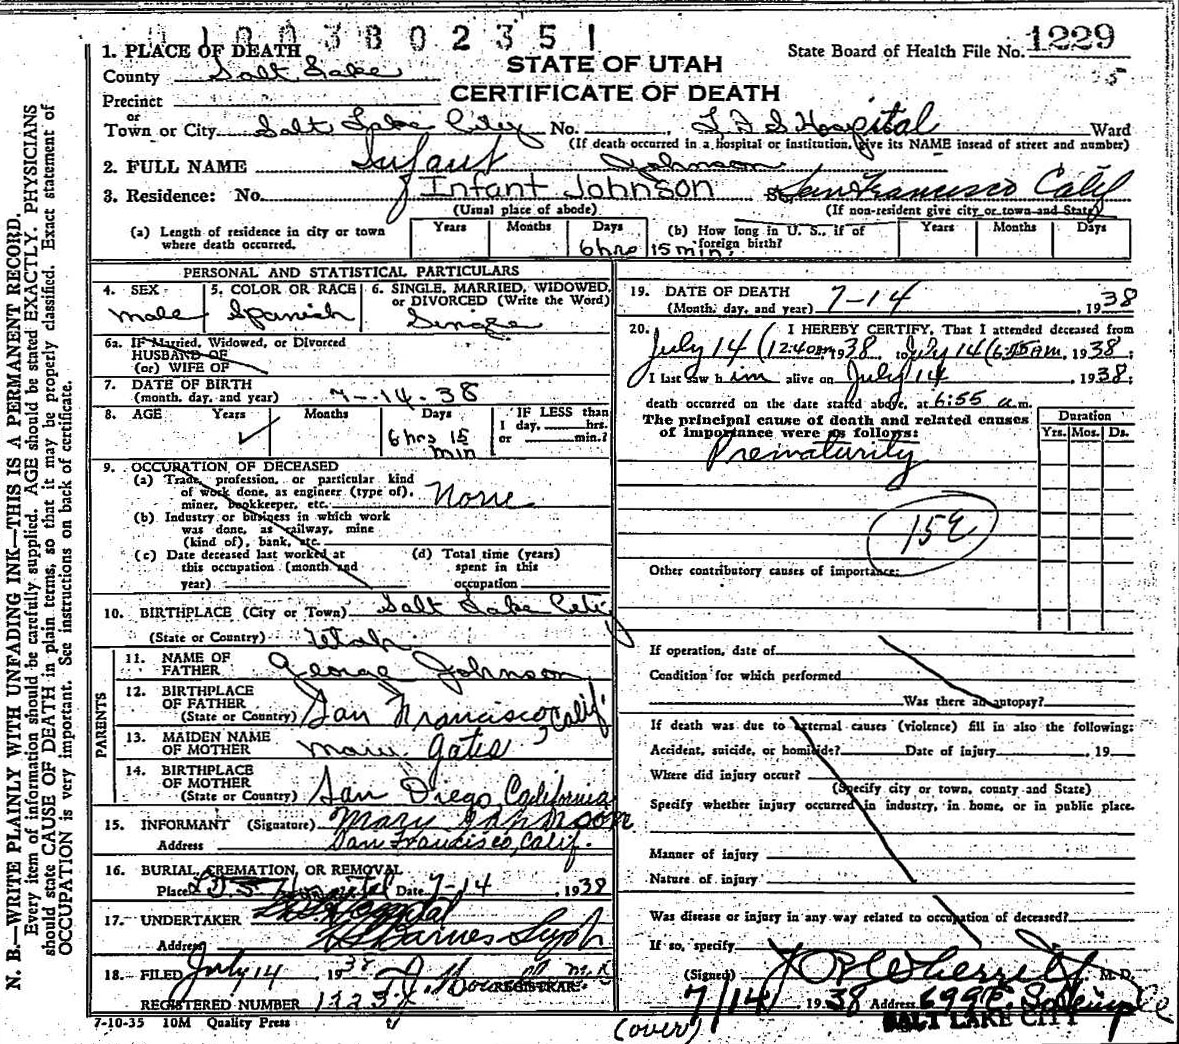 1003802351
1. PLACE OF DEATH
County Salt Lake
Precinct
or
Town or City Salt Lake City No. L D S Hospital Ward
(If death occurred in a hospital or institution, give its NAME insead of street and number)
State Board of Health File No. 1229
5
STATE OF UTAH
CERTIFICATE OF DEATH
2. FULL NAME Infant Johnson
3. Residence: No. Infant Johnson San Francisco Calif
(Usual place of abode) (If non-resident give city or town and State)
(a) Length of residence in city or town where death occurred. Years Months Days 6 hrs 15 min.
(b) How long in U. S., if of foreign birth? Years Months Days
PERSONAL AND STATISTICAL PARTICULARS
4. SEX male
5. COLOR OR RACE Spanish
6. SINGLE, MARRIED, WIDOWED, or DIVORCED (Write the Word) Single
6a. If Married, Widowed, or Divorced
HUSBAND OF
(or) WIFE OF
7. DATE OF BIRTH
(month, day, and year) 7-14-38
8. AGE Years Months Days 6 hrs 15 min
IF LESS than
1 day, hrs.
or min.?
9. OCCUPATION OF DECEASED
(a) Trade, profession, or particular kind
of work done, as engineer (type of),
miner, bookkeeper, etc. None
(b) Industry or business in which work
was done, as railway, mine
(kind of), bank, etc.
(c) Date deceased last worked at
this occupation (month and
year)
(d) Total time (years)
spent in this
occupation
10. BIRTHPLACE (City or Town) Salt Lake City
(State or Country) Utah
PARENTS
11. NAME OF
FATHER George Johnson
12. BIRTHPLACE
OF FATHER
(State or Country) San Francisco, Calif
13. MAIDEN NAME
OF MOTHER Mary Gates
14. BIRTHPLACE
OF MOTHER
(State or Country) San Diego, California
15. INFORMANT (Signature) Mary Johnson
Address San Francisco, Calif.
16. BURIAL, CREMATION, OR REMOVAL
Place L.D.S. Hospital Date 7-14 1938
17. UNDERTAKER Hospital
Address
18. FILED July 14, 1938
REGISTRAR
REGISTERED NUMBER
7-10-35 10M Quality Press
19. DATE OF DEATH
(Month, day, and year) 7-14, 1938
20. I HEREBY CERTIFY, That I attended deceased from
July 14 (12:40am, 1938, to July 14 AM, 1938;
I last saw him alive on July 14, 1938;
death occurred on the date stated above, at 6:55 a.m.
The principal cause of death and related causes
of importance were as follows:
Duration
Yrs. Mos. Ds.
Prematurity
159
Other contributory causes of importance:
If operation, date of
Condition for which performed
Was there an autopsy?
If death was due to external causes (violence) fill in also the following:
Accident, suicide, or homicide? Date of injury , 19
Where did injury occur?
(Specify city or town, county and State)
Specify whether injury occurred in industry, in home, or in public place.
Manner of injury
Nature of injury
Was disease or injury in any way related to occupation of deceased?
If so, specify
(Signed) M. D.
7/14 1938 Address 699 E. So Temple
SALT LAKE CITY
(over)
N. B.—WRITE PLAINLY WITH UNFADING INK—THIS IS A PERMANENT RECORD.
Every item of information should be carefully supplied. AGE should be stated EXACTLY. PHYSICIANS
should state CAUSE OF DEATH in plain terms, so that it may be properly classified. Exact statement of
OCCUPATION is very important. See instructions on back of certificate.